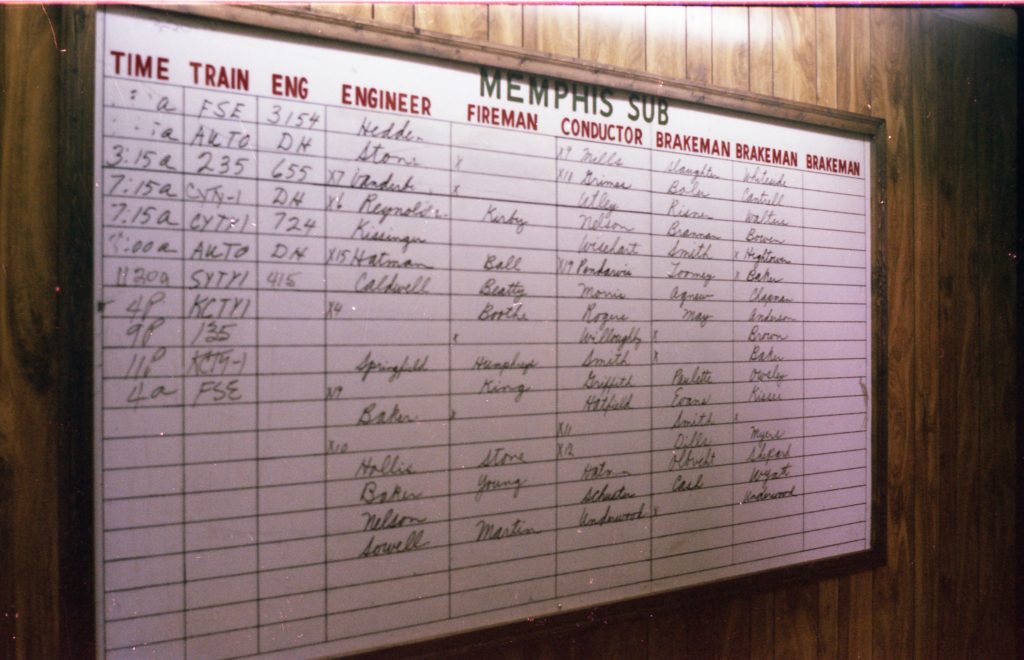 MEMPHIS SUB
TIME TRAIN ENG ENGINEER FIREMAN CONDUCTOR BRAKEMAN BRAKEMAN BRAKEMAN
a FSE 3154 Hedden X9 Mills Slaughter Whiteside
a AUTO DH Stone x X11 Grimes Baler Cantrell
3:15a 235 655 X7 x Utley Risner Walters
7:15a CYTY-1 DH X6 Reynolds Kirby Nelson Branman Bowen
7:15a CYTY1 724 Kissinger Wisehart Smith x Hightower
:00a AUTO DH X15 Hatman Ball X19 Pendarvis Loomey x Baker
1120a SYTY1 415 Caldwell Beatty Morris Agnew Chapman
4P KCTY1 X4 Boothe Rogers May Anderson
9P 135 x Willoughby x Brown
11P KCTY-1 Springfield Humphreys Smith x Baker
4a FSE X9 King Griffith Paulette Owsley
Baker x Hatfield Evans Kisser
X10 X11 Smith x
Hollis Stone X12 Dills Myers
Baker Young Olbricht
Nelson Schuster Cash Wyatt
Sowell Martin Underwood x Underwood